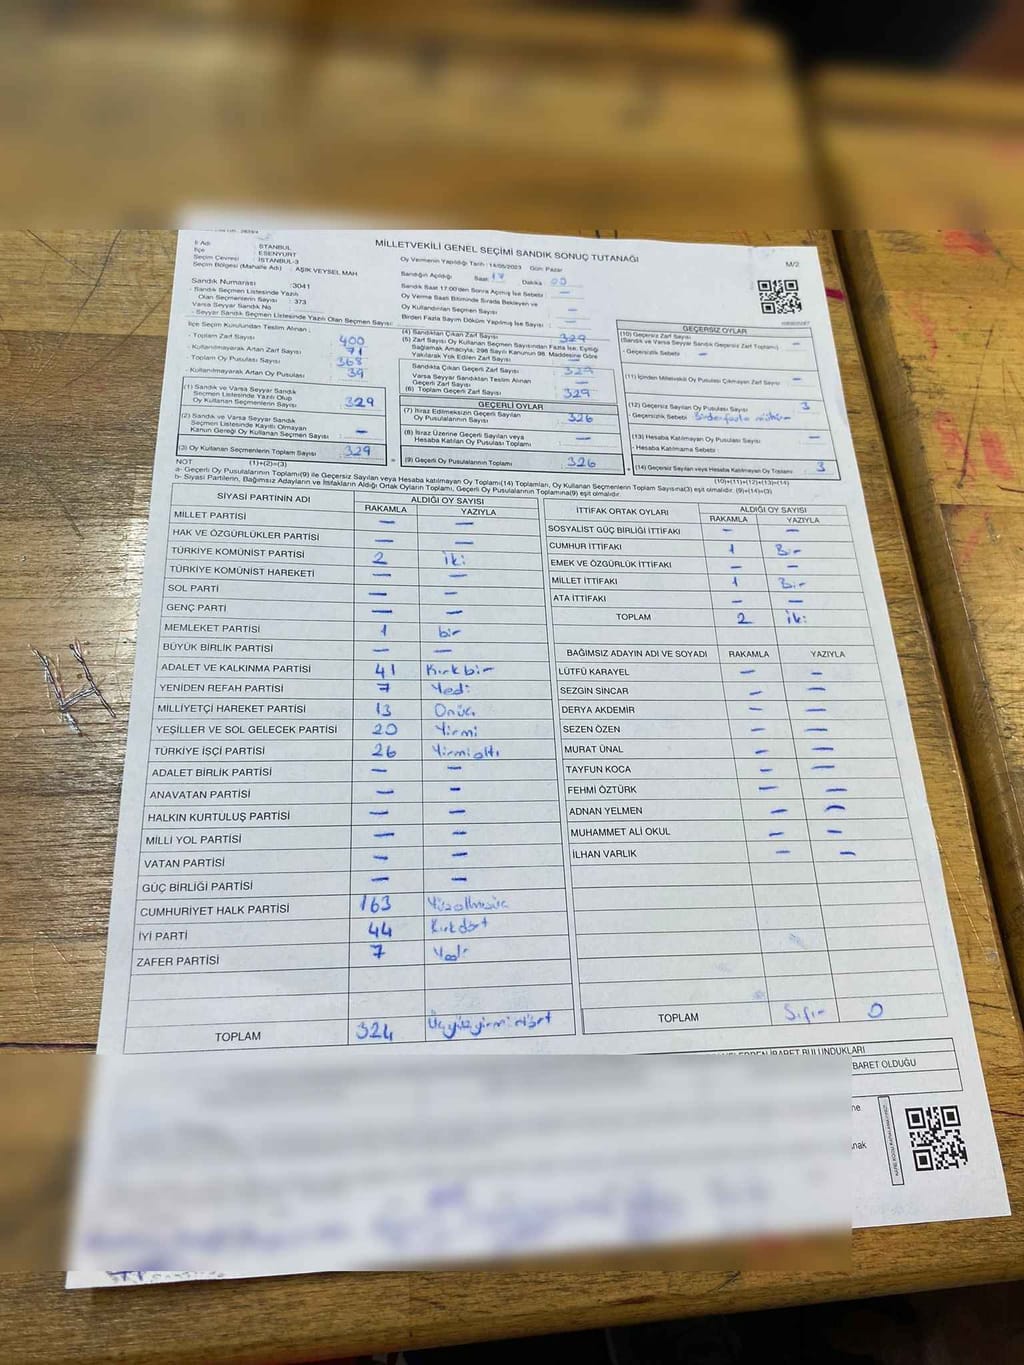 İl Adı : İSTANBUL
İlçe : ESENYURT
Seçim Çevresi : İSTANBUL-3
Seçim Bölgesi (Mahalle Adı) : AŞIK VEYSEL MAH
MİLLETVEKİLİ GENEL SEÇİMİ SANDIK SONUÇ TUTANAĞI
M/2
Oy Vermenin Yapıldığı Tarih : 14/05/2023 Gün: Pazar
Sandığın Açıldığı Saat : 17 Dakika : 00
Sandık Saat 17:00'den Sonra Açılmış İse Sebebi : —
Oy Verme Saati Bitiminde Sırada Bekleyen ve
Oy Kullandırılan Seçmen Sayısı : —
Birden Fazla Sayım Döküm Yapılmış İse Sayısı : —
Sandık Numarası : 3041
- Sandık Seçmen Listesinde Yazılı
Olan Seçmenlerin Sayısı : 373
Varsa Seyyar Sandık No
- Seyyar Sandık Seçmen Listesinde Yazılı Olan Seçmen Sayısı:
İlçe Seçim Kurulundan Teslim Alınan ;
- Toplam Zarf Sayısı : 400
- Kullanılmayarak Artan Zarf Sayısı : 71
- Toplam Oy Pusulası Sayısı : 368
- Kullanılmayarak Artan Oy Pusulası : 39
(1) Sandık ve Varsa Seyyar Sandık
Seçmen Listesinde Yazılı Olup
Oy Kullanan Seçmenlerin Sayısı : 329
(2) Sandık ve Varsa Seyyar Sandık
Seçmen Listesinde Kayıtlı Olmayan
Kanun Gereği Oy Kullanan Seçmen Sayısı : —
(3) Oy Kullanan Seçmenlerin Toplam Sayısı : 329
(4) Sandıktan Çıkan Zarf Sayısı : 329
(5) Zarf Sayısı Oy Kullanan Seçmen Sayısından Fazla İse, Eşitliği
Sağlamak Amacıyla, 298 Sayılı Kanunun 98. Maddesine Göre
Yakılarak Yok Edilen Zarf Sayısı : —
Sandıkta Çıkan Geçerli Zarf Sayısı : 329
Varsa Seyyar Sandıktan Teslim Alınan
Geçerli Zarf Sayısı
(6) Toplam Geçerli Zarf Sayısı : 329
GEÇERLİ OYLAR
(7) İtiraz Edilmeksizin Geçerli Sayılan
Oy Pusulalarının Sayısı : 326
(8) İtiraz Üzerine Geçerli Sayılan veya
Hesaba Katılan Oy Pusulası Toplamı : —
(9) Geçerli Oy Pusulalarının Toplamı : 326
GEÇERSİZ OYLAR
(10) Geçersiz Zarf Sayısı
(Sandık ve Varsa Seyyar Sandık Geçersiz Zarf Toplamı) : —
- Geçersizlik Sebebi : —
(11) İçinden Milletvekili Oy Pusulası Çıkmayan Zarf Sayısı : —
(12) Geçersiz Sayılan Oy Pusulası Sayısı : 3
- Geçersizlik Sebebi : Birden fazla mühür
(13) Hesaba Katılmayan Oy Pusulası Sayısı : —
- Hesaba Katılmama Sebebi :
(14) Geçersiz Sayılan veya Hesaba Katılmayan Oy Toplamı : 3
NOT (1)+(2)=(3) (10)+(11)+(12)+(13)=(14)
a- Geçerli Oy Pusulalarının Toplamı(9) ile Geçersiz Sayılan veya Hesaba Katılmayan Oy Toplamı(14) Toplamları, Oy Kullanan Seçmenlerin Toplam Sayısına(3) eşit olmalıdır. (9)+(14)=(3)
b- Siyasi Partilerin, Bağımsız Adayların ve İttifakların Aldığı Ortak Oyların Toplamı, Geçerli Oy Pusulalarının Toplamına(9) eşit olmalıdır.
SİYASİ PARTİNİN ADI ALDIĞI OY SAYISI
RAKAMLA YAZIYLA
MİLLET PARTİSİ — —
HAK VE ÖZGÜRLÜKLER PARTİSİ — —
TÜRKİYE KOMÜNİST PARTİSİ 2 iki
TÜRKİYE KOMÜNİST HAREKETİ — —
SOL PARTİ — —
GENÇ PARTİ — —
MEMLEKET PARTİSİ 1 bir
BÜYÜK BİRLİK PARTİSİ — —
ADALET VE KALKINMA PARTİSİ 41 Kırkbir
YENİDEN REFAH PARTİSİ 7 Yedi
MİLLİYETÇİ HAREKET PARTİSİ 13 Onüç
YEŞİLLER VE SOL GELECEK PARTİSİ 20 Yirmi
TÜRKİYE İŞÇİ PARTİSİ 26 Yirmialtı
ADALET BİRLİK PARTİSİ — —
ANAVATAN PARTİSİ — —
HALKIN KURTULUŞ PARTİSİ — —
MİLLİ YOL PARTİSİ — —
VATAN PARTİSİ — —
GÜÇ BİRLİĞİ PARTİSİ — —
CUMHURİYET HALK PARTİSİ 163 Yüzaltmışüç
İYİ PARTİ 44 Kırkdört
ZAFER PARTİSİ 7 Yedi
TOPLAM 324 Üçyüzyirmidört
İTTİFAK ORTAK OYLARI ALDIĞI OY SAYISI
RAKAMLA YAZIYLA
SOSYALİST GÜÇ BİRLİĞİ İTTİFAKI — —
CUMHUR İTTİFAKI 1 Bir
EMEK VE ÖZGÜRLÜK İTTİFAKI — —
MİLLET İTTİFAKI 1 Bir
ATA İTTİFAKI — —
TOPLAM 2 iki
BAĞIMSIZ ADAYIN ADI VE SOYADI RAKAMLA YAZIYLA
LÜTFÜ KARAYEL — —
SEZGİN SİNCAR — —
DERYA AKDEMİR — —
SEZEN ÖZEN — —
MURAT ÜNAL — —
TAYFUN KOCA — —
FEHMİ ÖZTÜRK — —
ADNAN YELMEN — —
MUHAMMET ALİ OKUL — —
İLHAN VARLIK — —
TOPLAM Sıfır 0
İBARET BULUNDUKLARI
BARET OLDUĞU